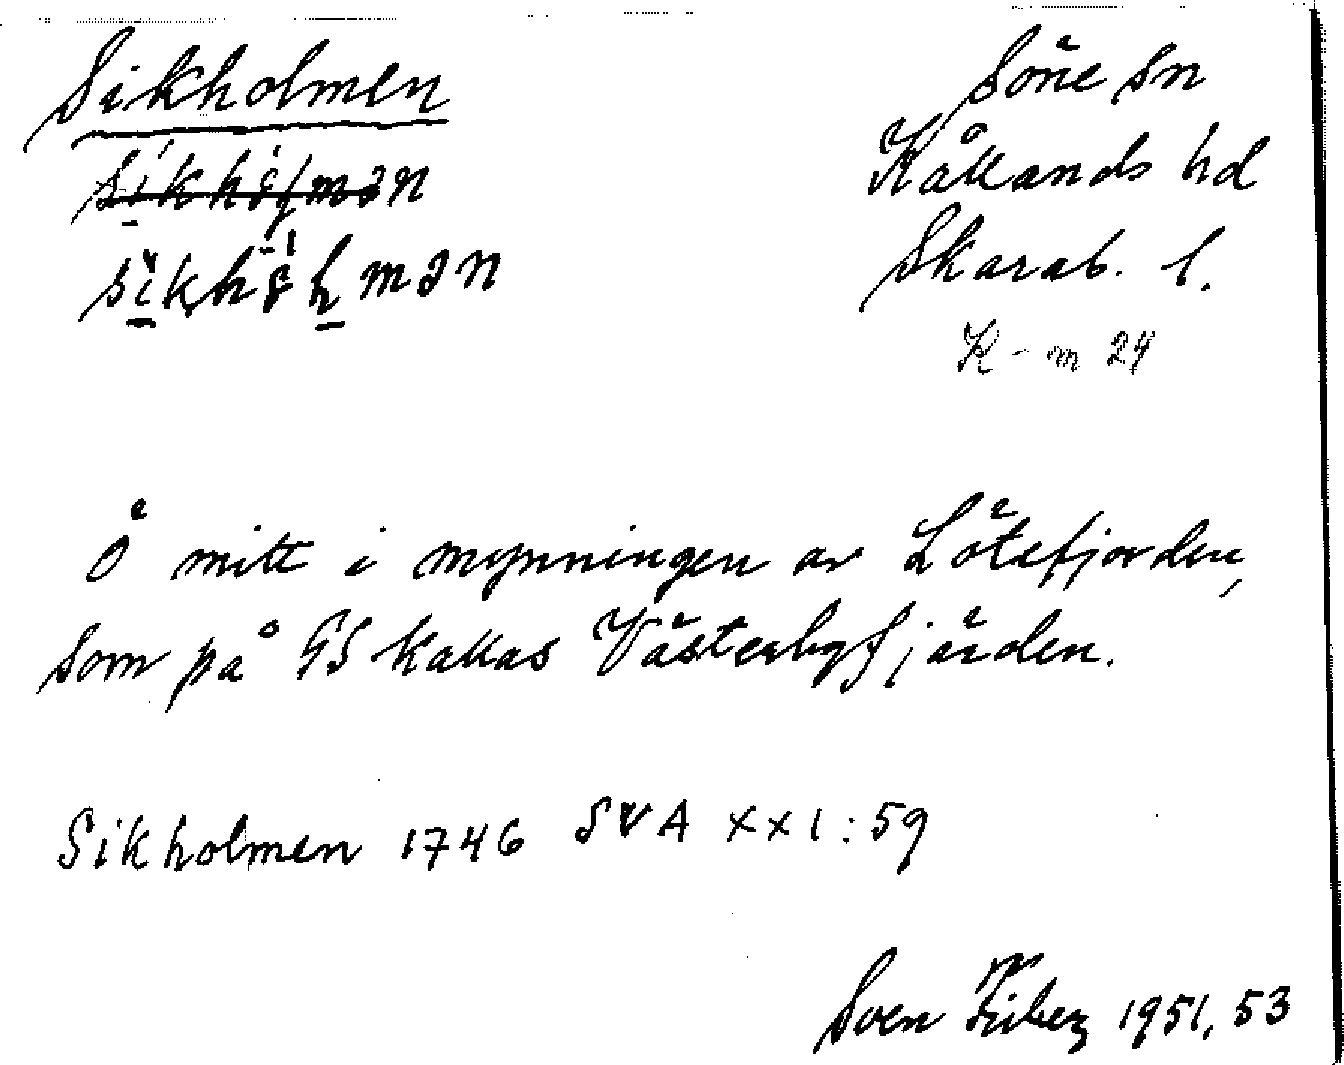 Sikholmen
Söne sn
Kållands hd
Skarab. l.
K-m 24
Ö mitt i mynningen av Lötefjorden,
som på GS kallas Västerbyfjärden.
Sikholmen 1746 SVA XX1:59
Sven 1951, 53